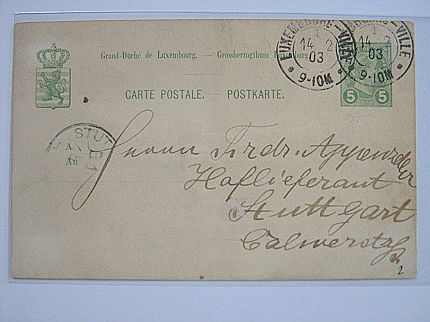 Grand-Duché de Luxembourg. — Grossherzogthum
CARTE POSTALE. — POSTKARTE.
LUXEMBOURG-VILLE
14 2
03
9-10M
VILLE
14 2
03
9-10M
5 5
STUT
Herrn Frdr.
Hoflieferant
Stuttgart
Calwerstr
2